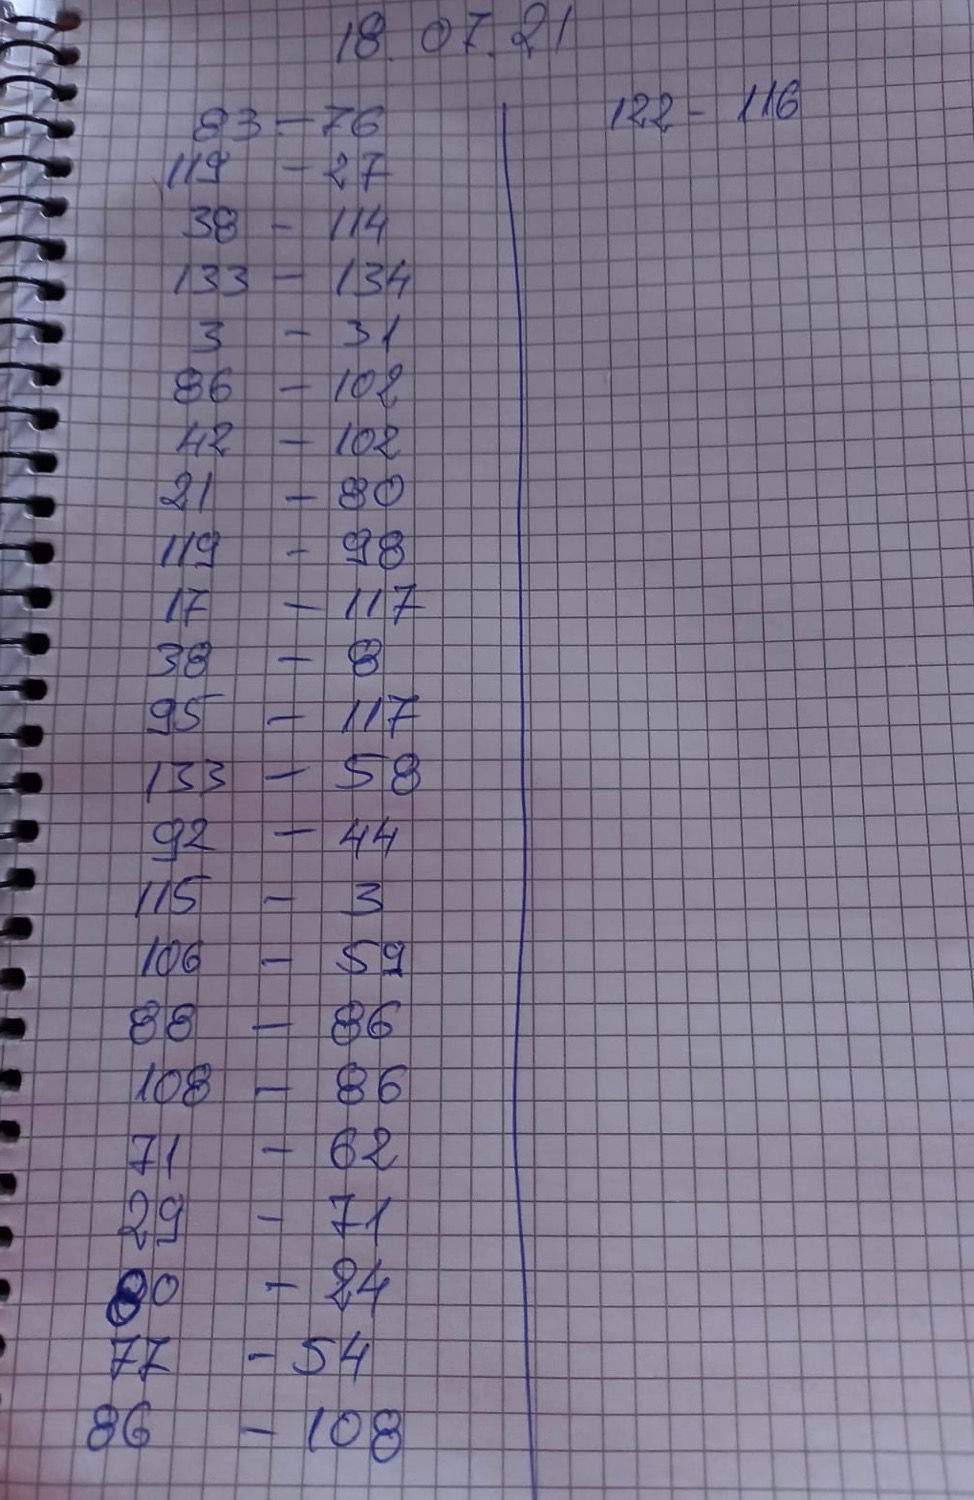 18.07.21
83 - 76
119 - 27
38 - 114
133 - 134
3 - 31
86 - 102
42 - 102
21 - 80
119 - 98
17 - 117
38 - 8
95 - 117
133 - 58
92 - 44
115 - 3
106 - 59
88 - 86
108 - 86
71 - 62
29 - 71
80 - 24
77 - 54
86 - 108
122 - 116